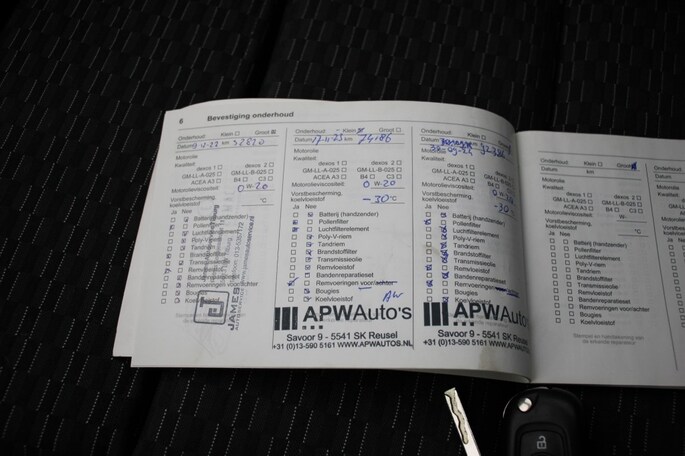 6 Bevestiging onderhoud
Onderhoud: Klein Groot
Datum km 32820
Motorolie
Kwaliteit:
dexos 1 dexos 2
GM-LL-A-025 GM-LL-B-025
ACEA A3 B4 C3
Motorolieviscositeit: 0 W-20
Vorstbescherming,
koelvloeistof: °C
Ja Nee
Batterij (handzender)
Pollenfilter
Luchtfilterelement
Poly-V-riem
Tandriem
Brandstoffilter
Transmissieolie
Remvloeistof
Bandenreparatieset
Remvoeringen voor/achter
Bougies
Koelvloeistof
JAMES
Onderhoud: Klein Groot
Datum 17-11-23 km 74186
Motorolie
Kwaliteit:
dexos 1 dexos 2
GM-LL-A-025 GM-LL-B-025
ACEA A3 B4 C3
Motorolieviscositeit: 0 W-20
Vorstbescherming,
koelvloeistof: -30°C
Ja Nee
Batterij (handzender)
Pollenfilter
Luchtfilterelement
Poly-V-riem
Tandriem
Brandstoffilter
Transmissieolie
Remvloeistof
Bandenreparatieset
Remvoeringen voor/achter
Bougies
Koelvloeistof
APWAuto's
Savoor 9 - 5541 SK Reusel
+31 (0)13-590 5161 WWW.APWAUTOS.NL
Onderhoud: Klein Groot
Datum km
Motorolie
Kwaliteit:
dexos 1 dexos 2
GM-LL-A-025 GM-LL-B-025
ACEA A3 B4 C3
Motorolieviscositeit: 0 W-20
Vorstbescherming,
koelvloeistof: -30°C
Ja Nee
Batterij (handzender)
Pollenfilter
Luchtfilterelement
Poly-V-riem
Tandriem
Brandstoffilter
Transmissieolie
Remvloeistof
Bandenreparatieset
Remvoeringen voor/achter
Bougies
Koelvloeistof
APWAuto's
Savoor 9 - 5541 SK Reusel
+31 (0)13-590 5161 WWW.APWAUTOS.NL
Onderhoud: Klein Groot
Datum: km
Motorolie
Kwaliteit:
dexos 1 dexos 2
GM-LL-A-025 GM-LL-B-025
ACEA A3 B4 C3
Motorolieviscositeit: W-
Vorstbescherming,
koelvloeistof: °C
Ja Nee
Batterij (handzender)
Pollenfilter
Luchtfilterelement
Poly-V-riem
Tandriem
Brandstoffilter
Transmissieolie
Remvloeistof
Bandenreparatieset
Remvoeringen voor/achter
Bougies
Koelvloeistof